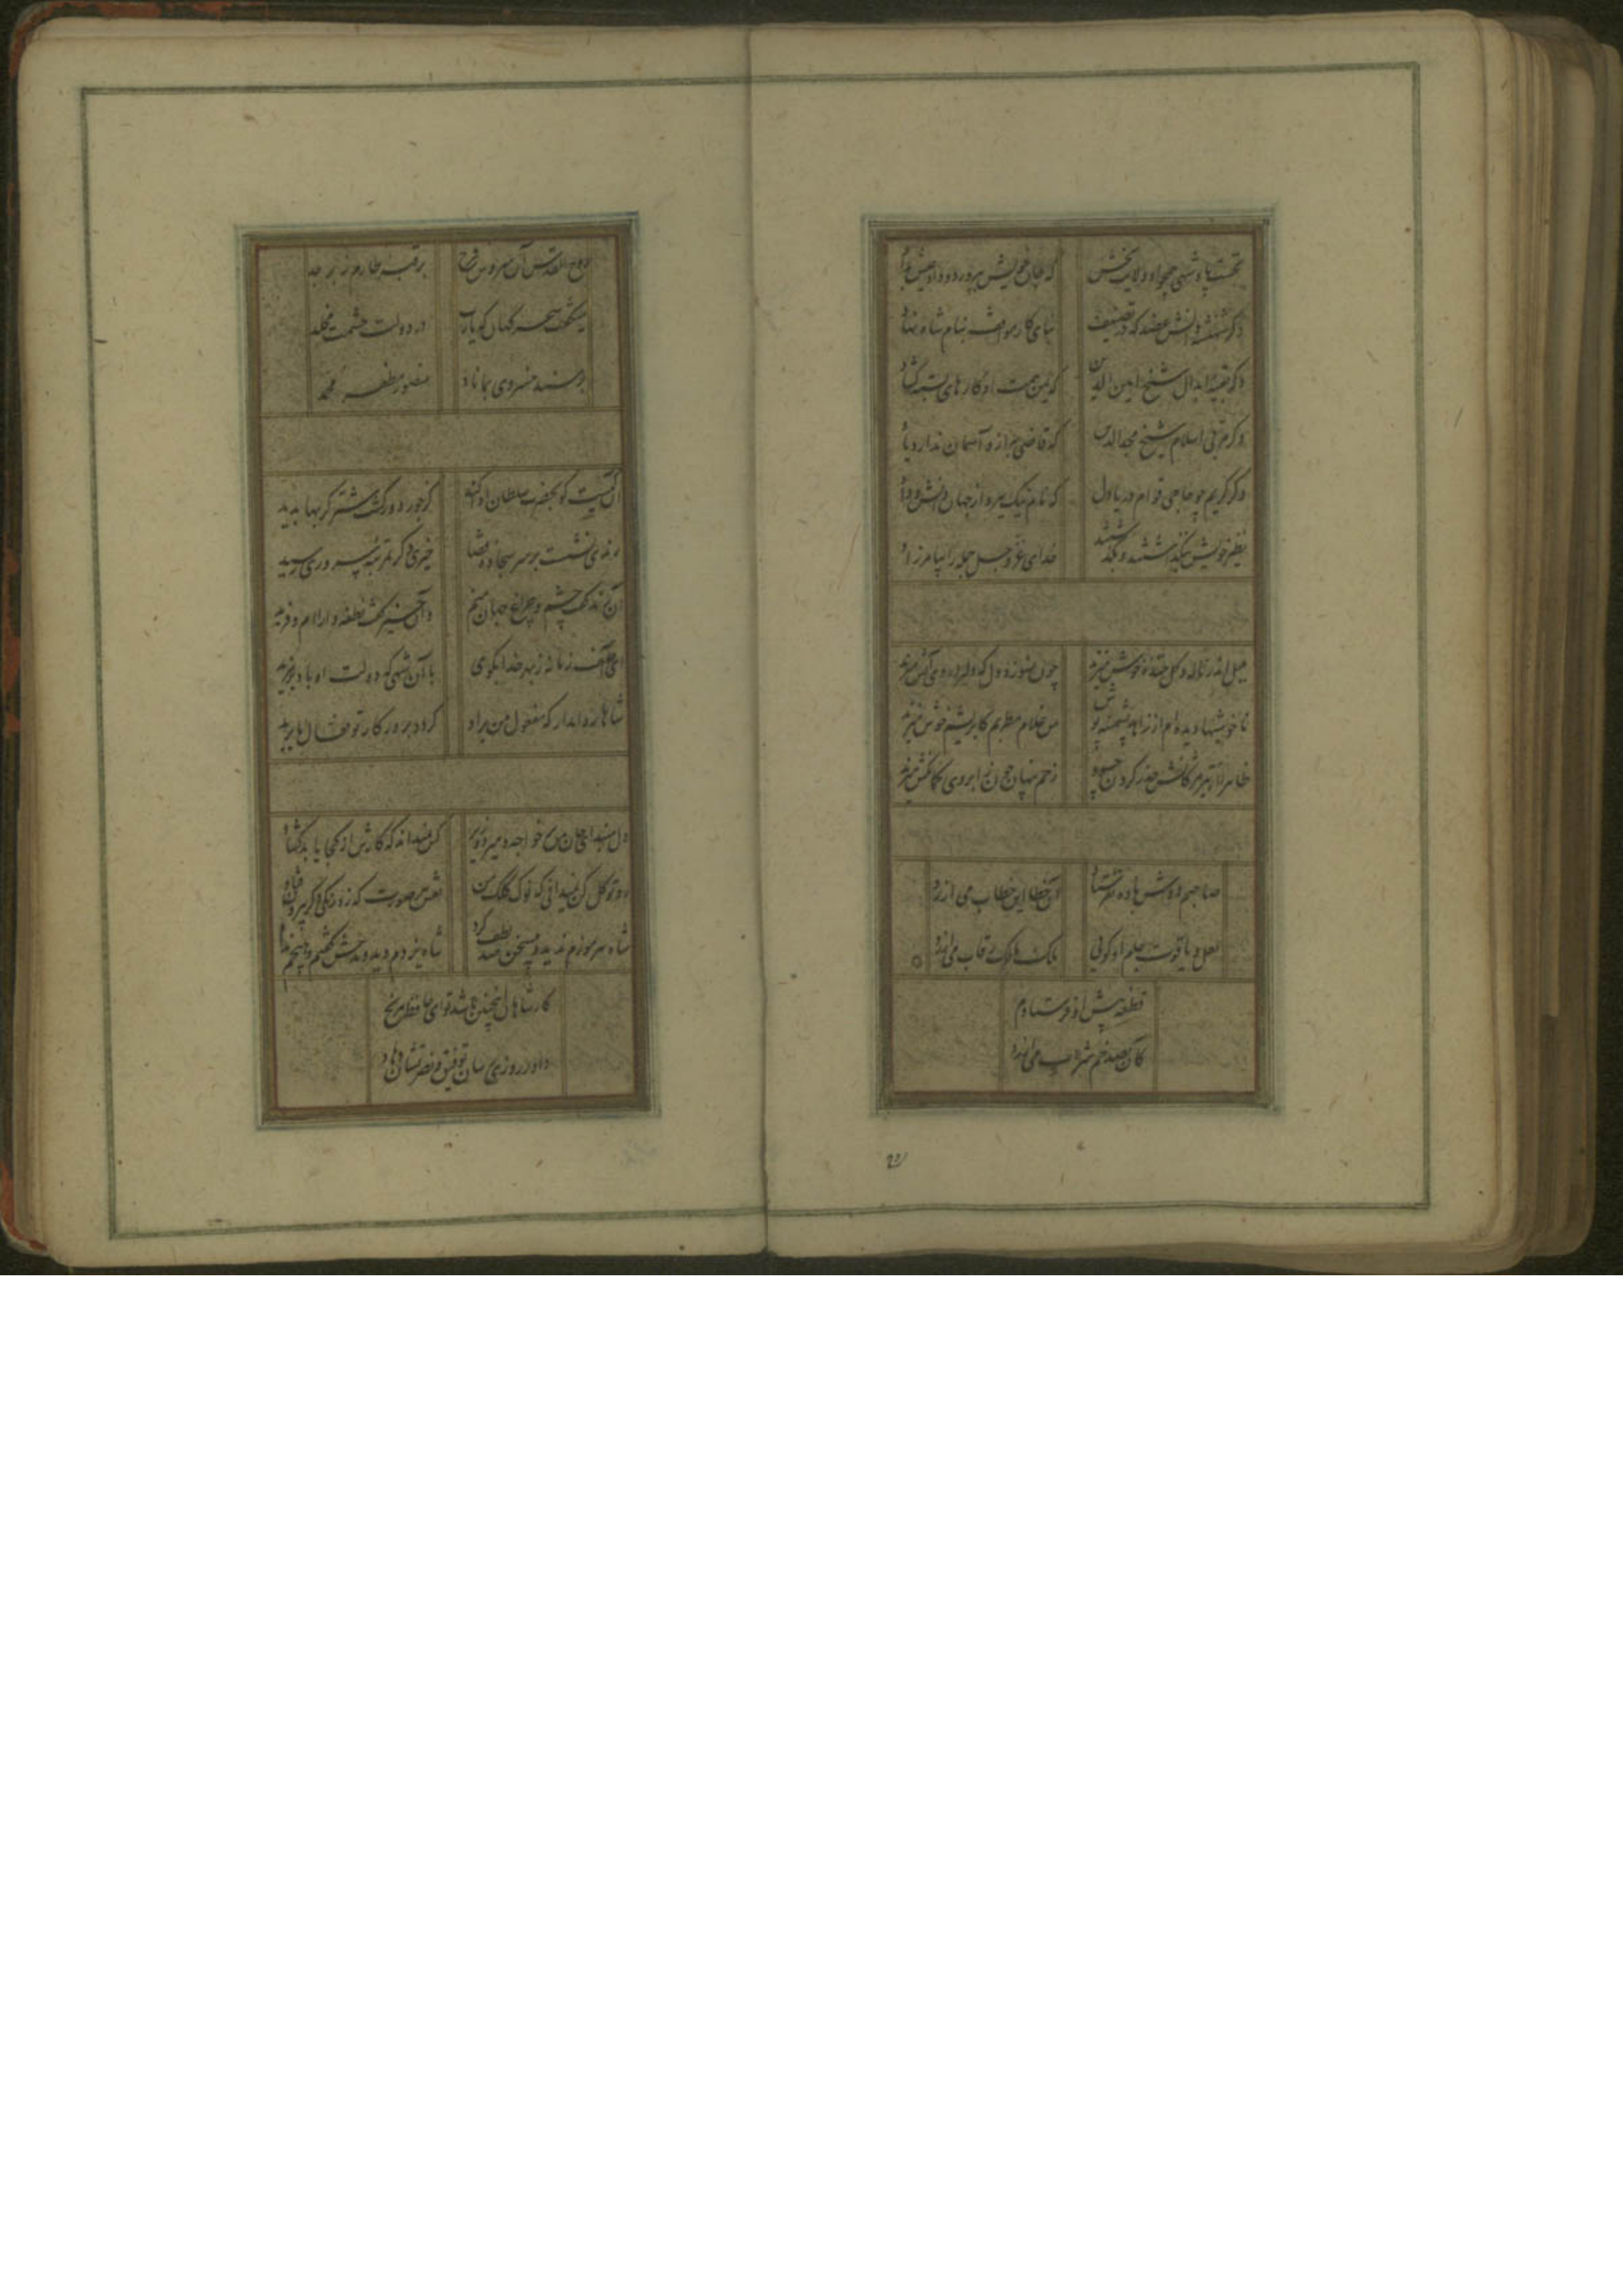 نخست پادشهی همچو او ولایت بخش که جان خویش بپرورد و داد عیش بداد
دگر شهنشه دانش عضد که در تصنیف بنای کار مواقف بنام شاه نهاد
دگر بقیه ابدال شیخ امین الدین که یمن همت او کارهای بسته گشاد
دگر مربی اسلام شیخ مجدالدین که قاضی به ازو آسمان ندارد یاد
دگر کریم چو حاجی قوام دریادل که نام نیک ببرد از جهان بخشش و داد
نظیر خویش بنگذاشتند و بگذشتند خدای عز و جل جمله را بیامرزاد
میل اندر ناله و گل خنده خوش میزند چون نسوزد دل که دلبر در وی آتش میزند
ناخوشیها دیده‌ام از زاهد پشمینه پوش من غلام مطربم کابریشم خوش میزند
ظاهرا از تیر مژگانش حذر کردن چه سود زخم پنهان چون ز ابروی کمانکش میزند
صاحبم دوش باده نفرستاد آن خطا این خطاب می ارزد
لعل و یاقوت جام او گوئی ملک مالک رقاب می ارزد
قطعه پیش او فرستادم
کان بصد خم شراب می ارزد
روح القدس آن سروش فرخ بر قبه طارم زبرجد
میگفت سحر گهان که یارب در دولت حشمت مخلد
بر مسند خسروی بماناد منصور مظفر محمد
آن کیست کو بحضرت سلطان ادا کند کز جور دور گشت شتر گربها پدید
رندی نشست بر سر سجاده قضا حیزی دگر بمرتبه سروری رسید
آن رند گفت چشم و چراغ جهان منم وآن حیز گفت نطفه دارا‌ام و فرید
ای آصف زمانه ز بهر خدا بگوی با آن شهی که دولت او باد بر مزید
شاها روا مدار که مفعول من یراد گردد بروزگار تو فعال ما یرید
دل منه ای جان من بر خواجه و میر و وزیر کس نمیداند که کارش از کجا باید گشاد
رو توکل کن نمیدانی که نوک کلک من نقش هر صورت که زد رنگی دگر بیرون فتاد
شاه هرموزم ندید و بیسخن صد لطف کرد شاه یزدم دید و مدحش گفتم و هیچم نداد
کار شاهان اینچنین باشد تو ای حافظ مرنج
داور روزی رسان توفیق و نصرتشان دهاد